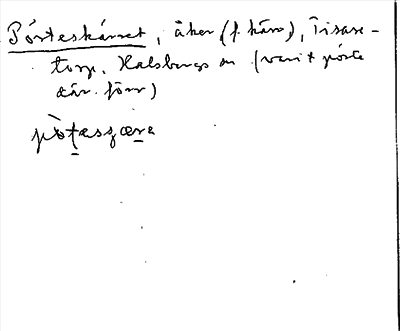 Pörteskärret, åker (f. kärr), Tisase-
torp, Halsbergs sn (varit pörte
där förr)
pò̱ṯæsçæṟe